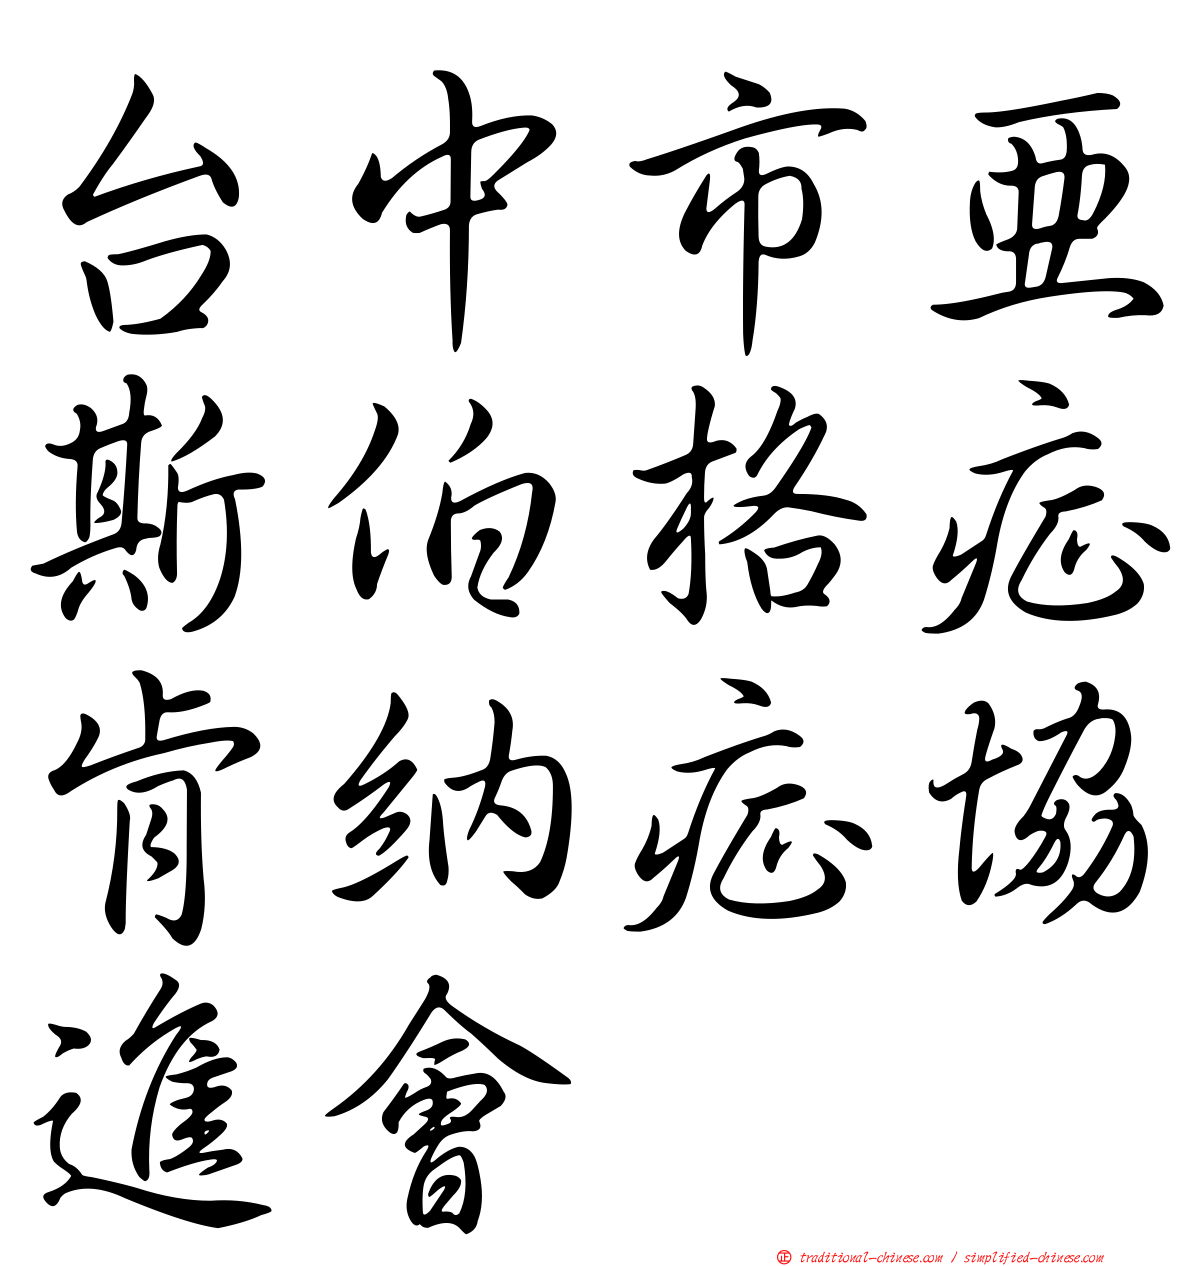 台中市亜
斯伯格症
肯納症協
進會
正 traditional-chinese.com / simplified-chinese.com